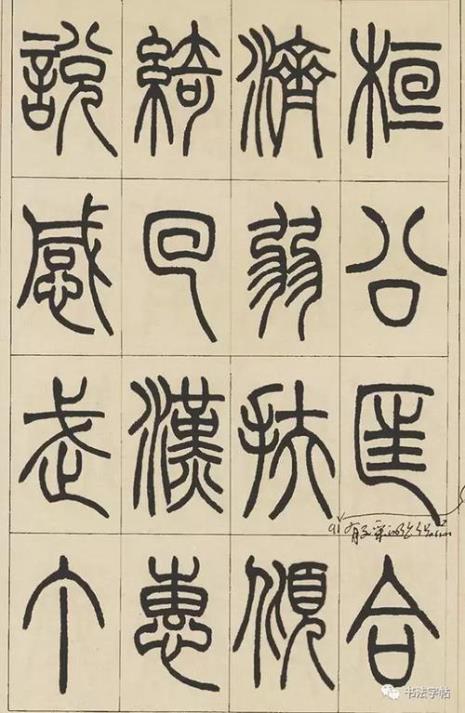 桓公匡合
濟弱扶傾
綺回漢惠
說感武丁
书法字帖